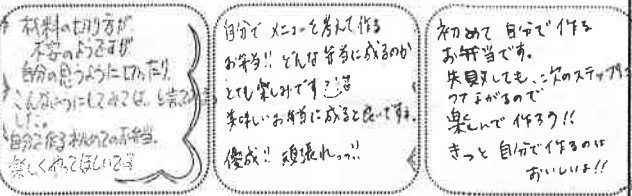 材料の切り方が
不安のようですが
自分の思うように切ったり、
こんなふうにしてみては、と言って
した。
自分で作る初めてのお弁当。
楽しくやってほしいです
自分で メニューを考えて作る
お弁当!! どんな弁当に成るのか
とても楽しみです
美味しいお弁当に成ると良いですね。
優成!! 頑張れっっ!!
初めて 自分で作る
お弁当です。
失敗しても、次のステップに
つながるので
楽しんで 作ろう!!
きっと 自分で作るのは
おいしいよ!!